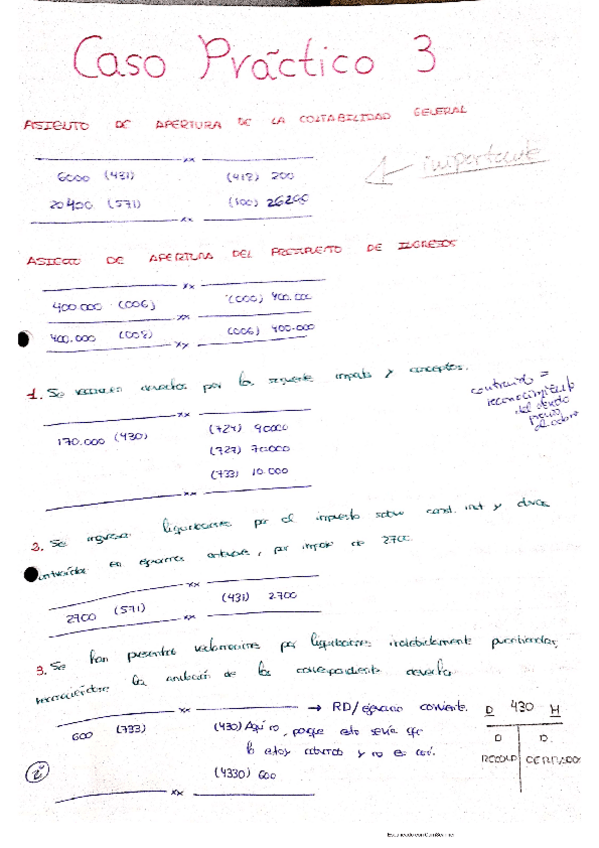 Caso Práctico 3
ASIENTO DE APERTURA DE LA CONTABILIDAD GENERAL
importante
xx
6000 (431) (418) 200
20400 (571) (100) 26200
xx
ASIENTO DE APERTURA DEL PRESUPUESTO DE INGRESOS
xx
400.000 (006) (000) 400.000
xx
400.000 (008) (006) 400.000
xx
1. Se reconocen derechos por la siguiente importe y conceptos.
contraido =
reconocimiento
del dcho
previo
al cobro
xx
170.000 (430) (724) 90000
(727) 70.000
(733) 10.000
xx
2. Se ingresan liquidaciones por el impuesto sobre const. inst y obras
contraídas en ejercicios anteriores, por importe de 2700.
xx
2700 (571) (431) 2.700
xx
3. Se han presentado reclamaciones por liquidaciones indebidamente practicadas,
reconociéndose la anulación de los correspondientes derechos
xx → RD/ejercicio corriente.
600 (733) (430) Aquí no, porque esto sería que
lo estoy cobrando y no es así.
(4330) 600
xx
D 430 H
D D.
RECON
Escaneado con CamScanner